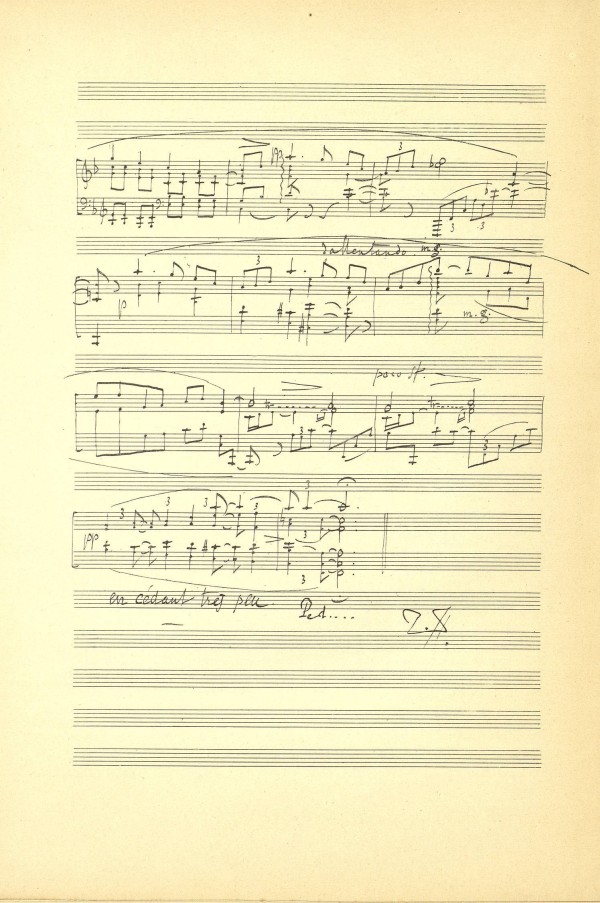 3
3 3
rallentando. m.g.
p 3
m.g.
poco
3
3
3 3 3
pp 3
3
en cédant très peu.
Ped....